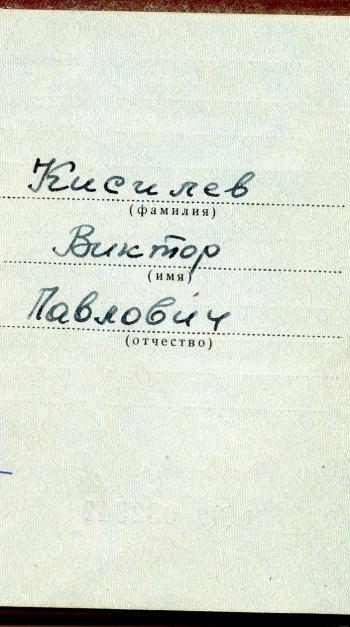 Кисилев
(фамилия)
Виктор
(имя)
Павлович
(отчество)